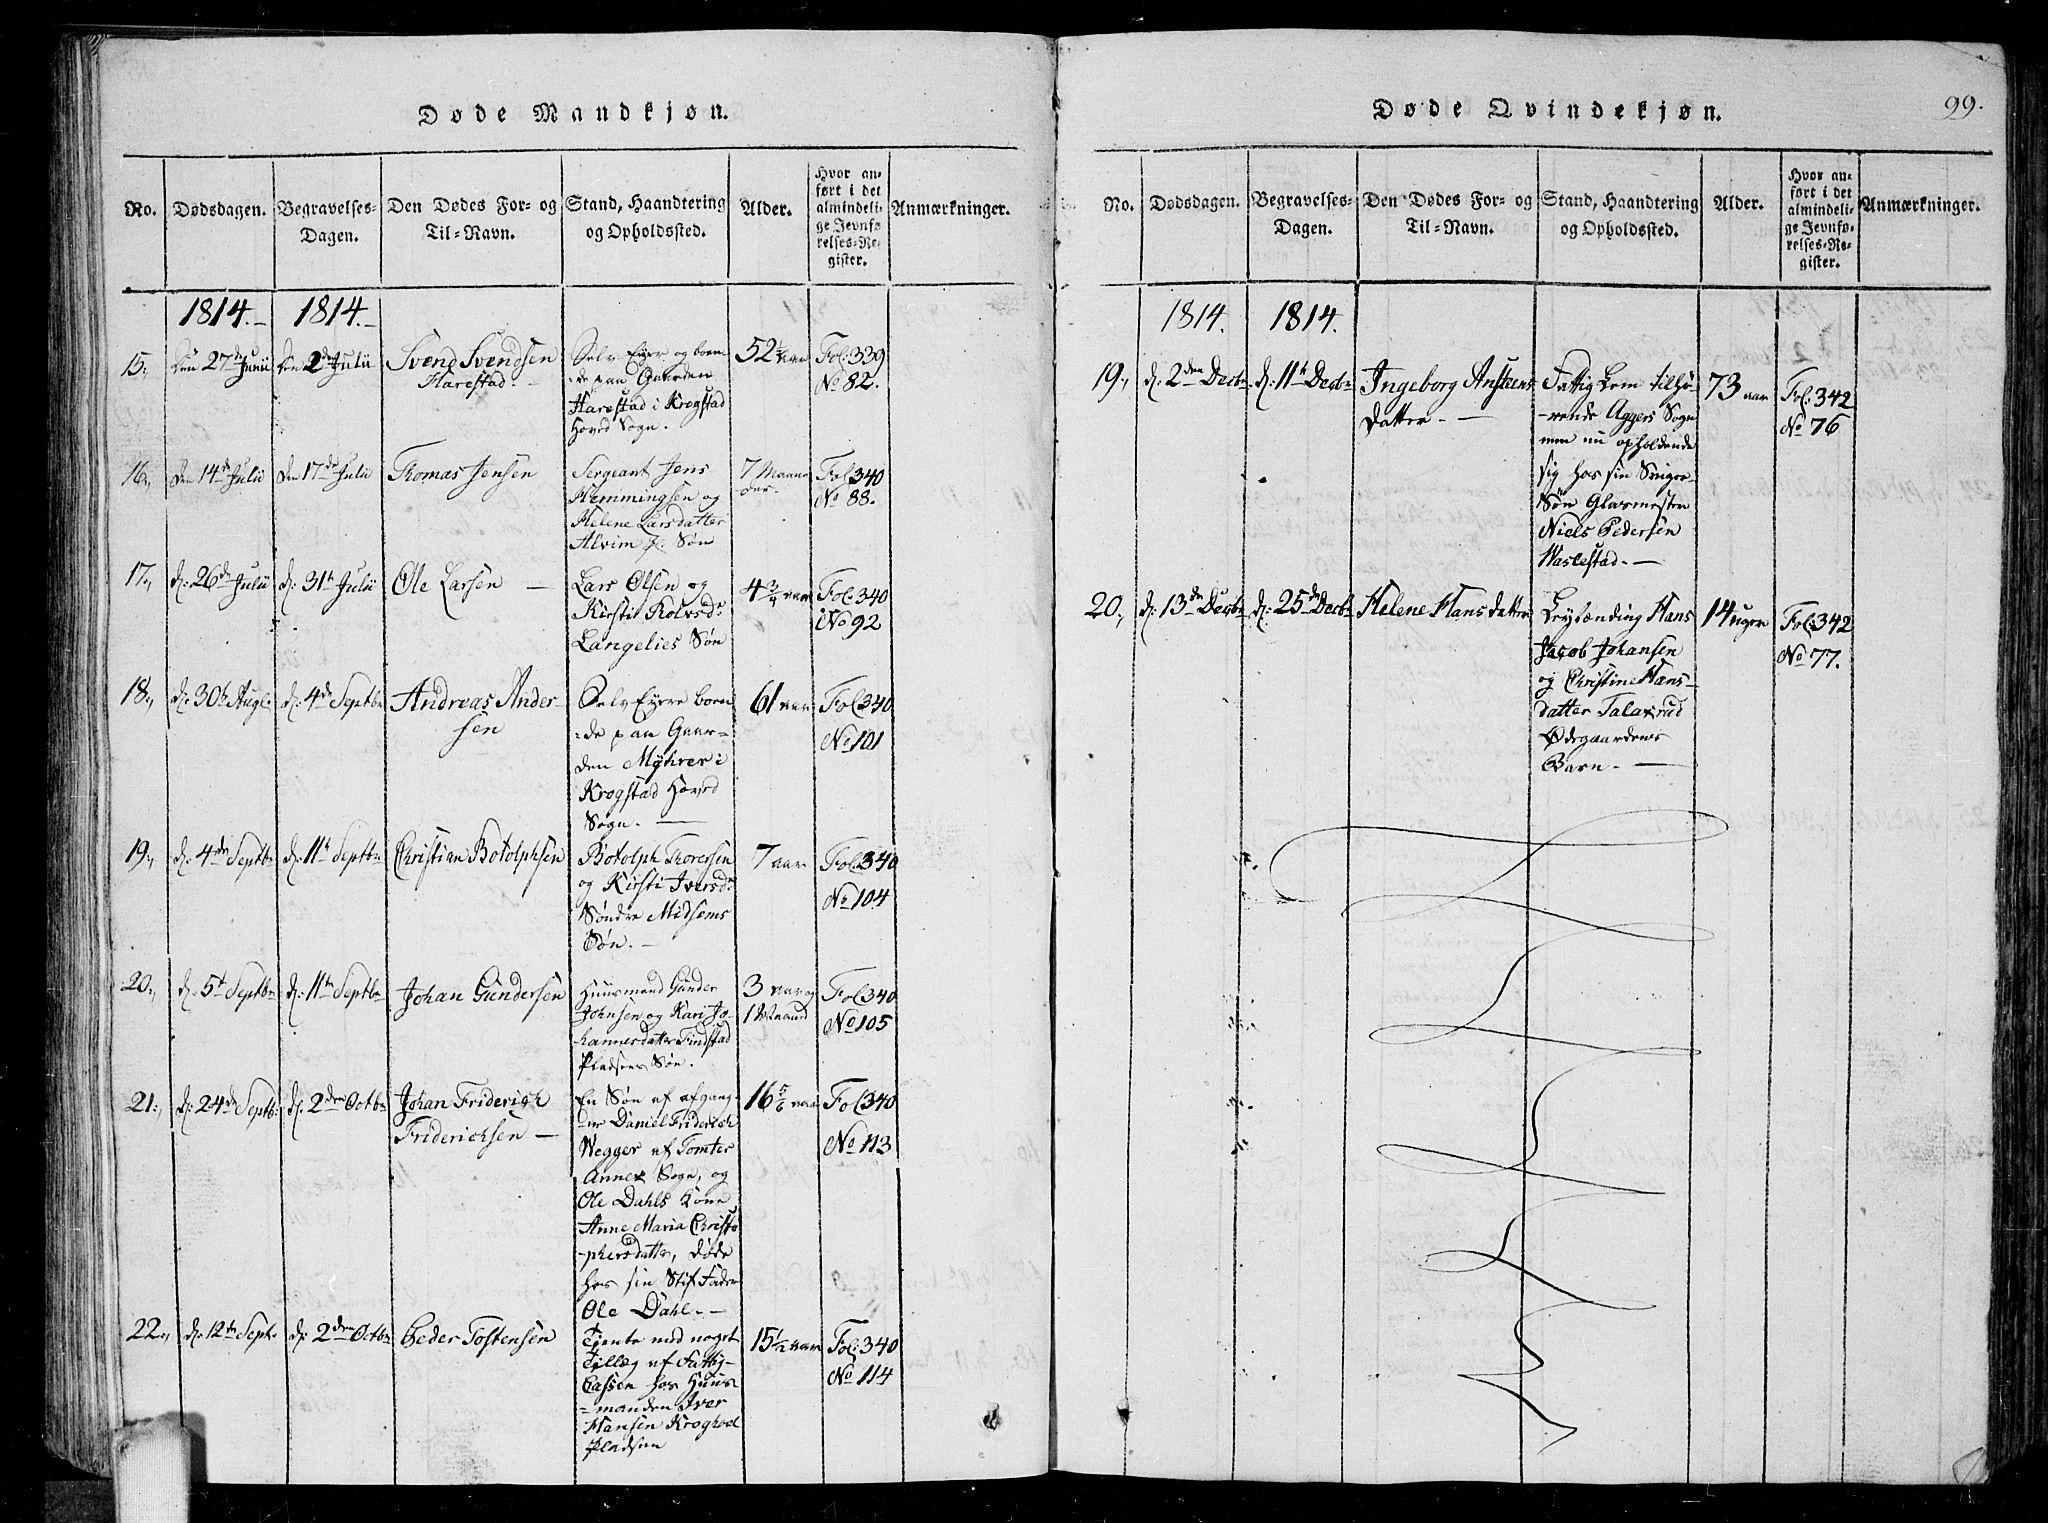 Døde Mandkjøn.
No.
Dødsdagen.
Begravelses-
Dagen.
Den Dødes For- og
Til-Navn.
Stand, Haandtering
og Opholdssted.
Alder.
Hvor an-
ført i det
almindeli-
ge Jevnfø-
relses-Re-
gister.
Anmærkninger.
1814.-
1814.-
15.,
den 27de Junii
den 2den Julii
Svend Svendsen
Harestad. -
Selv Eyer og boen-
-de paa Gaarden
Harestad i Krogstad
Hoved Sogn.
52 1/2 aar
Fol: 339
No 82.
16.,
den 14de Julii
den 17de Julii
Thomas Jensen
Sergeant Jens
Hemmingsen og
Helene Larsdatter
Alvim Søn
7 Maane
der.
Fol 340
No 88.
17.,
d: 26de Julii
d: 31te Julii
Ole Larsen -
Lars Olsen og
Kirsti Rolvsdr
Langelies Søn
4 3/4 aar
Fol: 340
No 92
18.,
d: 30te Aug:
d: 4de Septbr
Andreas Ander-
sen
Selv Eyere boen
-de paa Gaar-
den Myhrer i
Krogstad Hoved
Sogn. -
61 aar
Fol: 340
No 101
19.,
d: 4de Septbr
d: 11te Septbr
Christian Botolphsen
Botolph Thoresen
og Kirsti Iversdr
Søndre Midsems
Søn. -
7 aar
Fol: 340
No 104
20.,
d: 5te Septbr
d: 11te Septbr
Johan Gundersen
Huusmand Gunder
Johnsen og Kari Jo-
hannesdatter Findstad
Pladsens Søn.
3 aar og
1 Maaned
Fol 340
No 105
21.,
d: 24de Septb:
d: 2den Octbr
Johan Friderich
Friderichsen -
En Søn af afgang-
ne Daniel Friderich
Wegger af Tomter
Annex Sogn, og
Ole Dahls Kone
Anne Maria Christo
-phersdatter, døde
hos sin Stif Fader
Ole Dahl. -
16 5/6 aar
Fol 340
No 113
22.,
d: 12te Sept:
d: 2den Octbr
Peder Tostensen
Tjente med noget
Tillæg af Fattig-
Cassen hos Huus-
-manden Iver
Hansen Kroghoel
Pladsen
15 1/2 aar
Fol: 340
No 114
Døde Qvindekjøn.
99.
No.
Dødsdagen.
Begravelses-
Dagen.
Den Dødes For- og
Til-Navn.
Stand, Haandtering
og Opholdssted.
Alder.
Hvor an-
ført i det
almindeli-
ge Jevnfø-
relses-Re-
gister.
Anmærkninger.
1814.
1814.
19.,
d: 2den Decbr
d: 11te Decbr
Ingeborg Ansteens
Datter. -
Fattig Lem tilhø-
-rende Aggers Sogn
men nu opholdende
sig hos sin Sviger-
Søn Glasmester
Niels Pedersen
Waslestad. -
73 aar
Fol: 342
No 76
20.,
d: 13de Decbr
d: 25de Decbr
Helene Hansdatter
Leylænding Hans
Jacob Johansen
og Christine Hans-
datter Talaxrud
Ødegaardens
Barn. -
14 uger
Fol: 342
No 77.